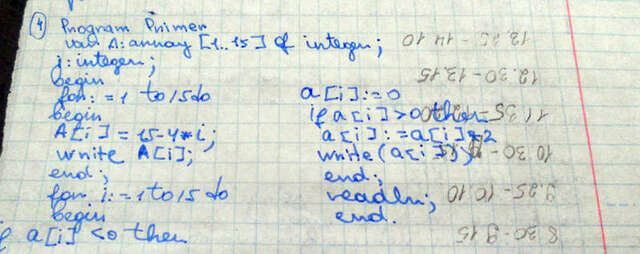 4 Program Primer
var A: array [1..15] of integer;
i: integer;
begin
for i: = 1 to 15 do
begin
A[i] = 15-4*i;
write A[i];
end;
for i: = 1 to 15 do
begin
if a[i] <0 then
a[i]:=0
if a[i]>0 then
a[i]:=a[i]*2
write(a[i]);
end;
readln;
end.
13.25 - 14.10
12.30 - 13.15
11.35 -
10.30 -
9.25 - 10.10
8.30 - 9.15